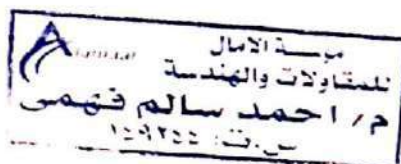 مؤسسة الامال
للمقاولات والهندسة
م/ احمد سالم فهمى
س.ت: